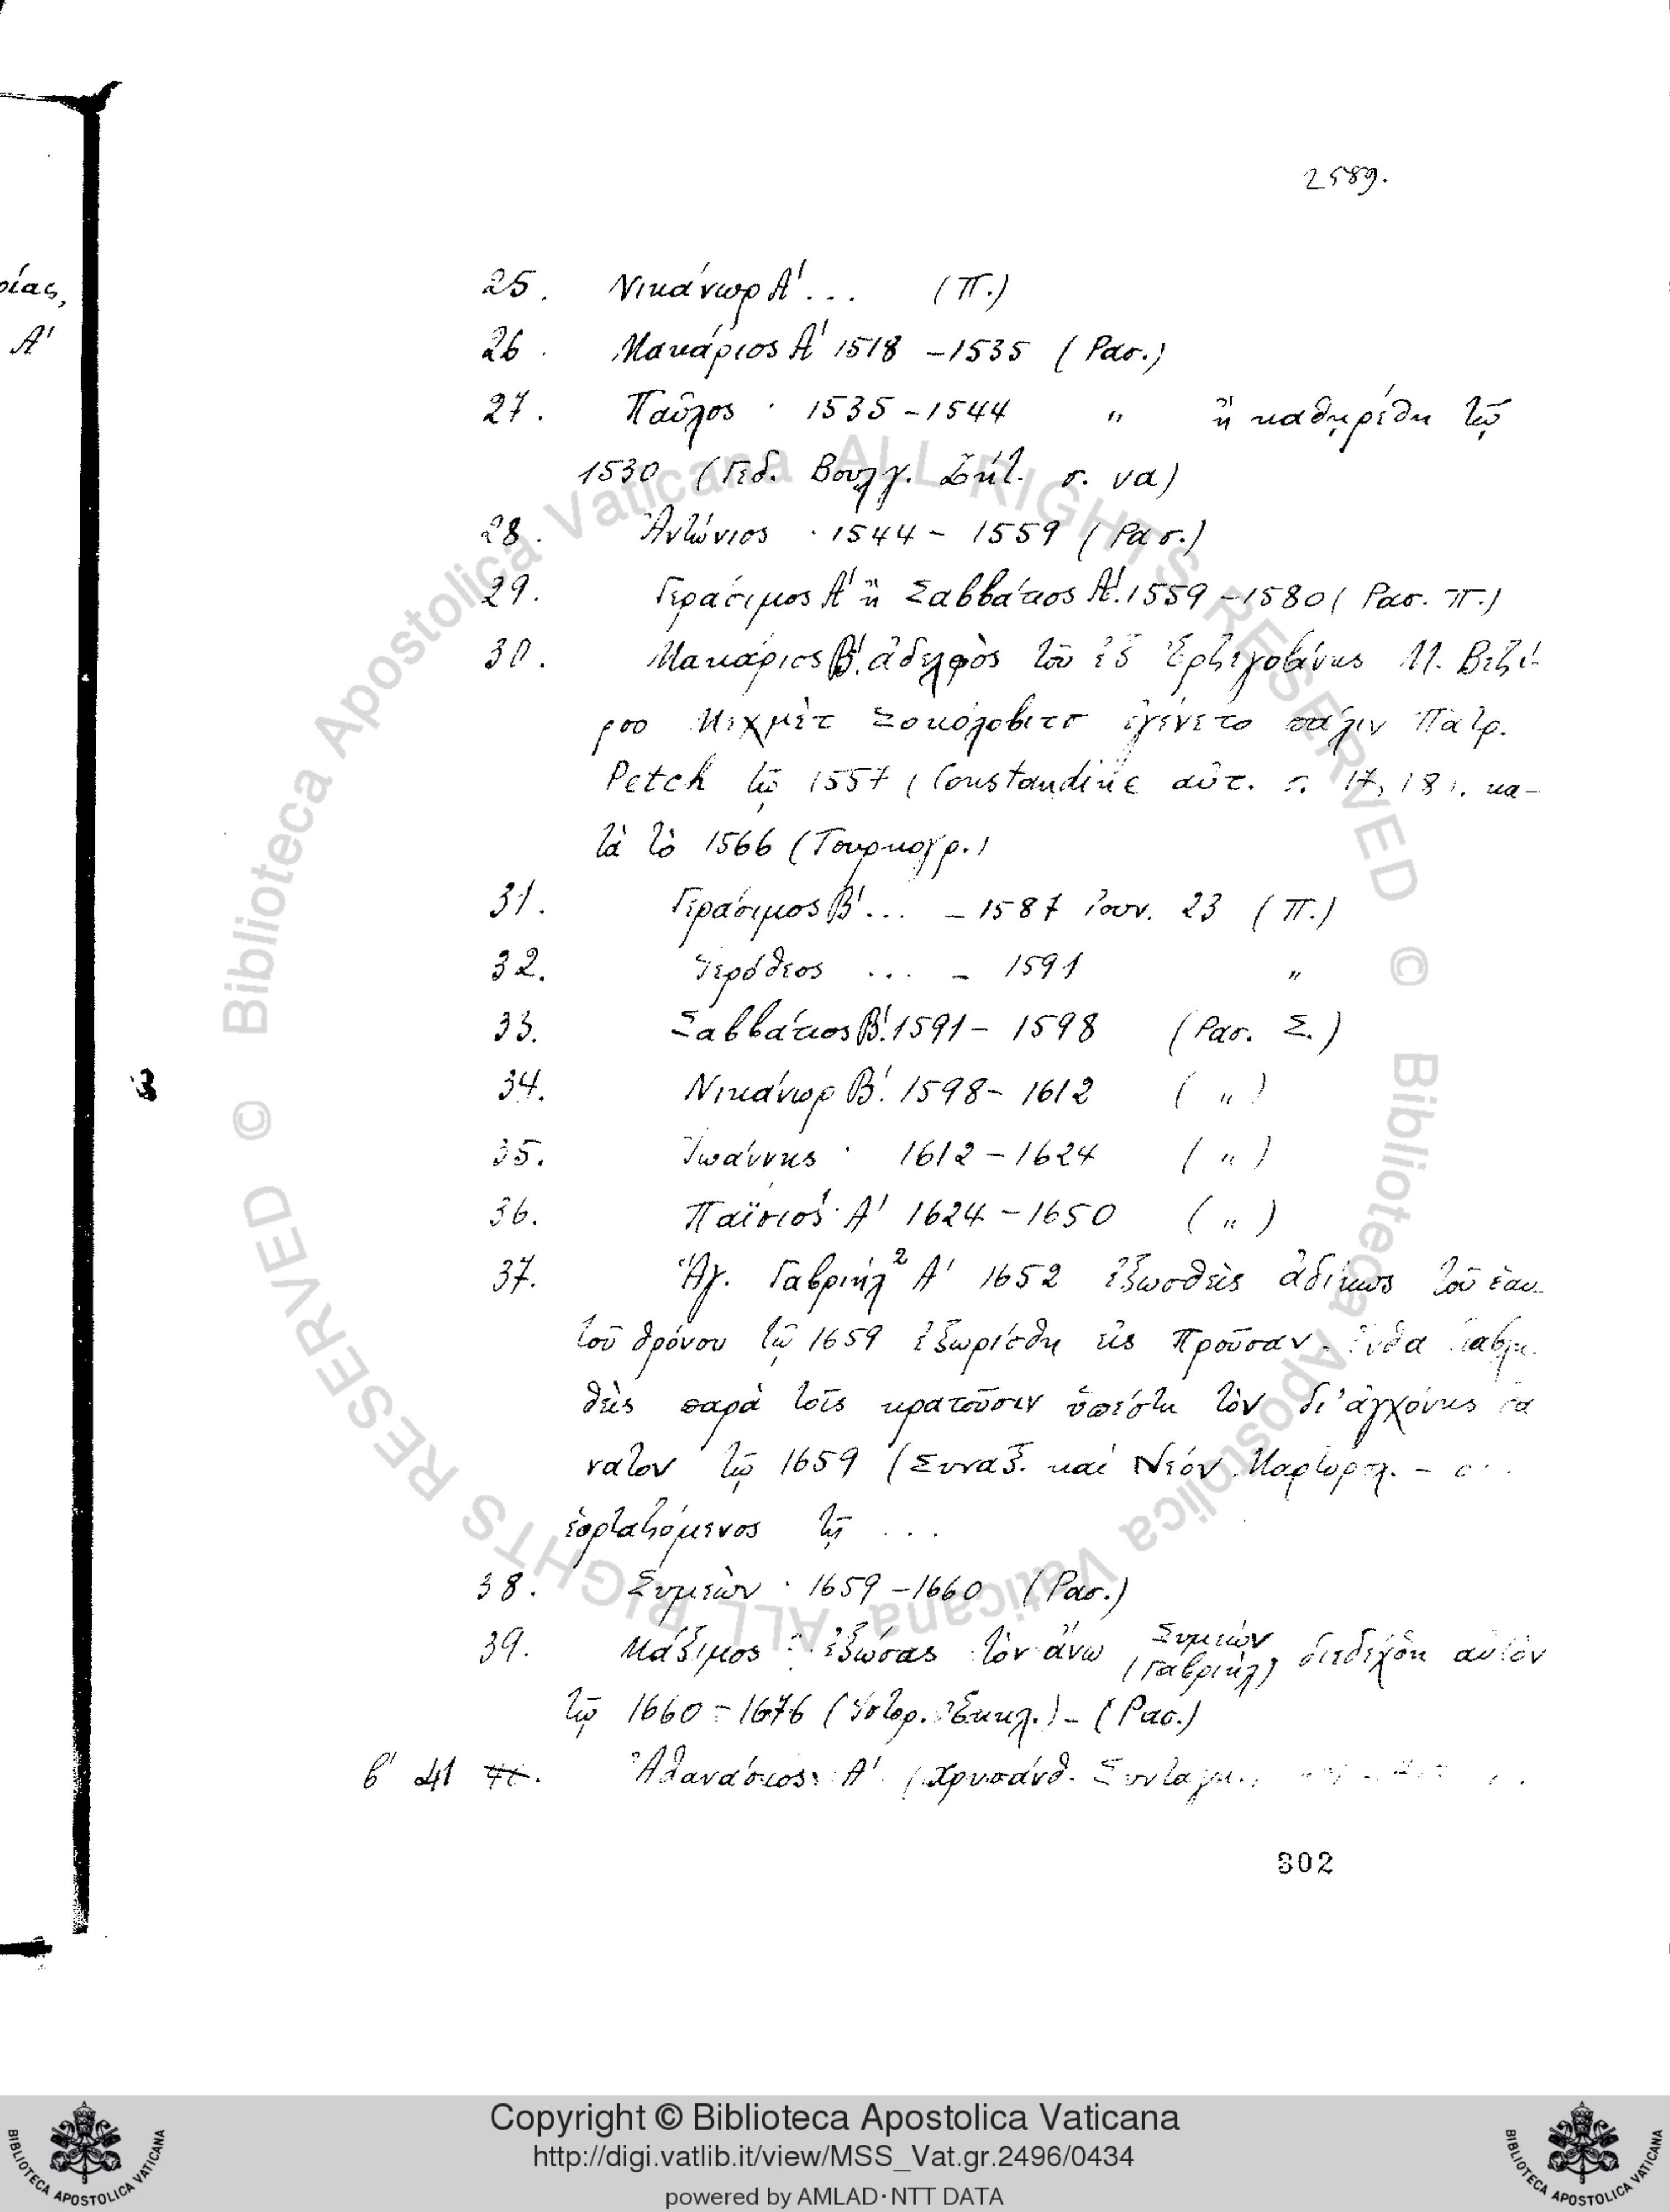 2589.
ρίας,
Α'
25. Νικάνωρ Α'... (Π.)
26. Μακάριος Α' 1518 - 1535 (Ρασ.)
27. Παῦλος · 1535 - 1544 " ἢ καθῃρέθη τῷ
1530 (Γεδ. Βουλγ. Ζήτ. σ. να)
28. Ἀντώνιος · 1544 - 1559 (Ρασ.)
29. Γεράσιμος Α' ἢ Σαββάτιος Α'. 1559 - 1580 (Ρασ. Π.)
30. Μακάριος Β'. ἀδελφὸς τοῦ ἐξ Ἑρζεγοβίνης Μ. Βεζί-
ρου Μεχμὲτ Σοκόλοβιτσ ἐγένετο πάλιν Πατρ.
Petch τῷ 1557 (Constandine αὐτ. σ. 17, 18). κα-
τὰ τὸ 1566 (Τουρκογρ.)
31. Γεράσιμος Β'... - 1587 ἰουν. 23 (Π.)
32. Ἱερόθεος ... - 1591 "
33. Σαββάτιος Β'. 1591 - 1598 (Ρασ. Σ.)
34. Νικάνωρ Β'. 1598 - 1612 ( " )
35. Ἰωάννης · 1612 - 1624 ( " )
36. Παΐσιος Α' 1624 - 1650 ( " )
37. Ἅγ. Γαβριήλ 2 Α' 1652 ἐξωσθεὶς ἀδίκως τοῦ ἑαυ-
τοῦ θρόνου τῷ 1659 ἐξωρίσθη εἰς Προῦσαν - ἔνθα
θεὶς παρὰ τοῖς κρατοῦσιν ὑπέστη τὸν δι' ἀγχόνης θά
νατον τῷ 1659 (Συναξ. καὶ Νέον Μαρτυρολ. -
ἑορταζόμενος τῇ ...
38. Συμεὼν · 1659 - 1660 (Ρασ.)
39. Μάξιμος · ἐξώσας τὸν ἄνω Συμεὼν (Γαβριήλ) διεδέχθη αὐτὸν
τῷ 1660 - 1676 (Ἱστορ. Ἐκκλ.) - (Ρασ.)
β' 41 Ἀθανάσιος Α'. (Χρυσάνθ. Συνταγμ.
302
© Biblioteca Apostolica Vaticana ALL RIGHTS RESERVED © Biblioteca Apostolica Vaticana ALL RIGHTS RESERVED
Copyright © Biblioteca Apostolica Vaticana
http://digi.vatlib.it/view/MSS_Vat.gr.2496/0434
powered by AMLAD·NTT DATA
BIBLIOTECA APOSTOLICA VATICANA
BIBLIOTECA APOSTOLICA VATICANA